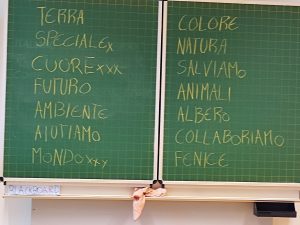 TERRA
SPECIALEx
CUORExxx
FUTURO
AMBIENTE
AIUTIAMO
MONDOxxy
COLORE
NATURA
SALVIAMO
ANIMALI
ALBERO
COLLABORIAMO
FENICE